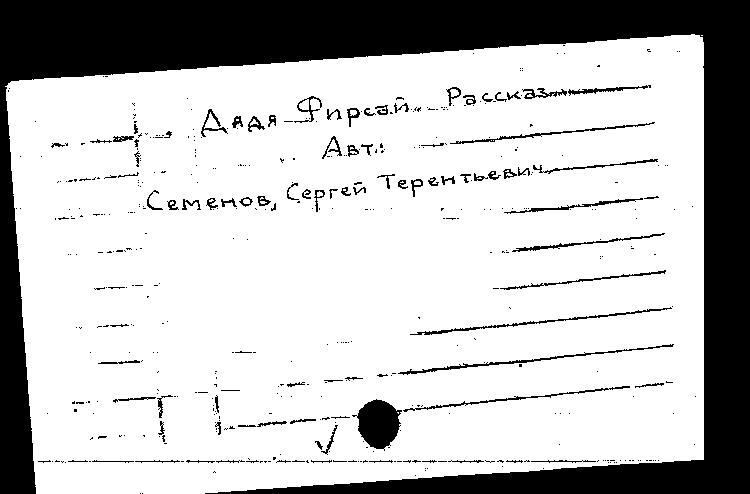 Дядя Фирсай. Рассказ
Авт.:
Семенов, Сергей Терентьевич